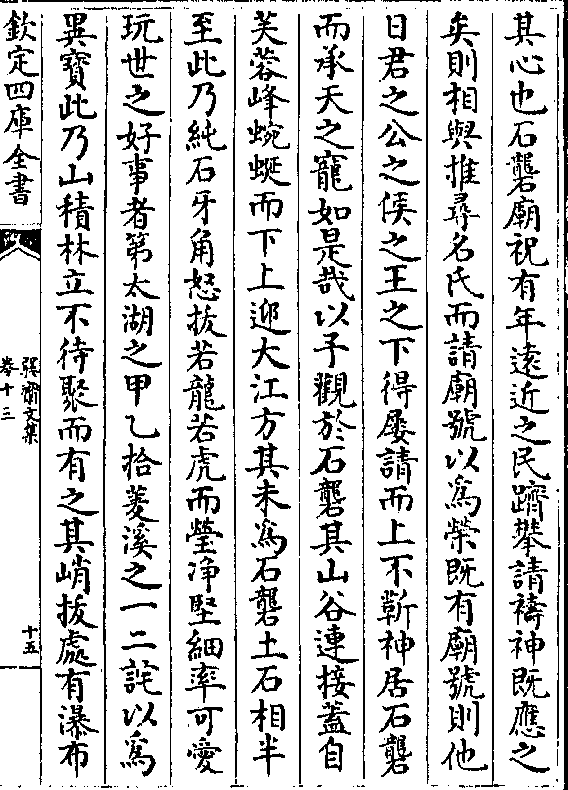 其心也石礱廟祝有年遠近之民躋攀請禱神既應之
矣則相與推尋名氏而請廟號以爲榮既有廟號則他
日君之公之侯之王之下得屢請而上不靳神居石礱
而承天之寵如是哉以予觀於石礱其山谷連接蓋自
芙蓉峰蜿蜒而下上迎大江方其未爲石礱土石相半
至此乃純石牙角怒拔若龍若虎而瑩净堅細率可愛
玩世之好事者第太湖之甲乙拾菱溪之一二詫以爲
異寶此乃山積林立不待聚而有之其峭拔處有瀑布
欽定四庫全書
文集
卷十三
十五